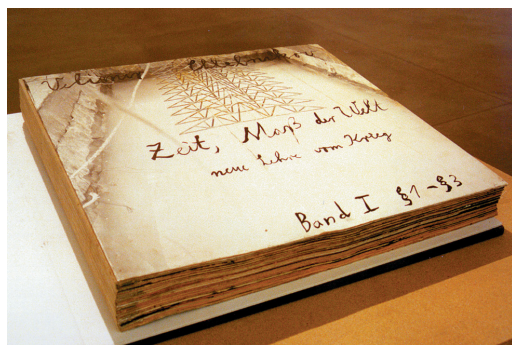 Velimir
Zeit, Maß der Welt
neue Lehre vom Krieg
Band I §1-§3